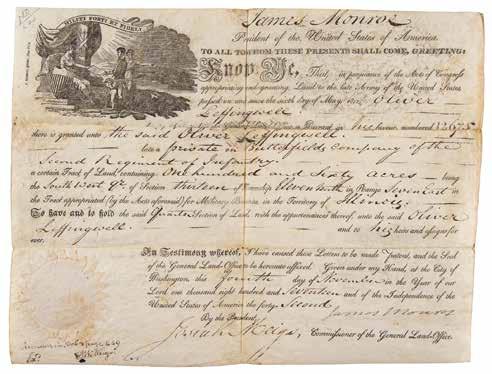 MILITI FORTI ET FIDELI
James Monroe
President of the United States of America.
TO ALL TO WHOM THESE PRESENTS SHALL COME, GREETING:
Know Ye, That, in pursuance of the Acts of Congress
appropriating and granting Land to the late Army of the United States
passed on and since the sixth day of May 1812, Oliver
Leffingwell having deposited in the General Land-Office a Warrant in his favour, numbered 12675
there is granted unto the said Oliver Leffingwell
late a private in Butterfields Company of the
Second Regiment of Infantry
a certain Tract of Land, containing One hundred and Sixty acres being
the South West qr of Section thirteen of Township Seven North in Range Seven East in
the Tract appropriated (by the Acts aforesaid) for Military Bounties, in the Territory of Illinois
To have and to hold the said Quarter Section of Land, with the appurtenances thereof, unto the said Oliver
Leffingwell and to his heirs and assigns for
ever.
In Testimony whereof, I have caused these Letters to be made Patent, and the Seal
of the General Land-Office to be hereunto affixed. Given under my Hand, at the City of
Washington, this fourth day of November in the Year of our
Lord one thousand eight hundred and Seventeen and of the Independence of the
United States of America the forty Second
By the President James Monroe
Josiah Meigs, Commissioner of the General Land-Office.